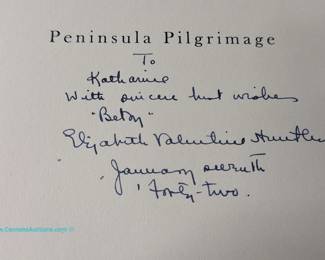 Peninsula Pilgrimage
To
Katharine
With sincere best wishes
"Betsy"
Elizabeth Valentine Huntley
January seventh
Forty-two.